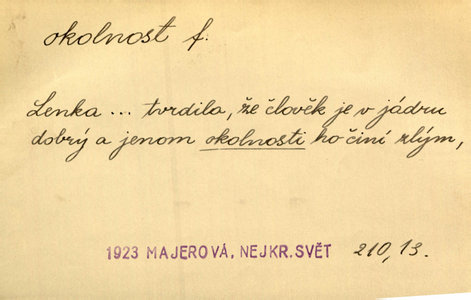 okolnost f.
Lenka ... tvrdila, že člověk je v jádru
dobrý a jenom okolnosti ho činí zlým,
1923 MAJEROVÁ, NEJKR. SVĚT 210, 13.